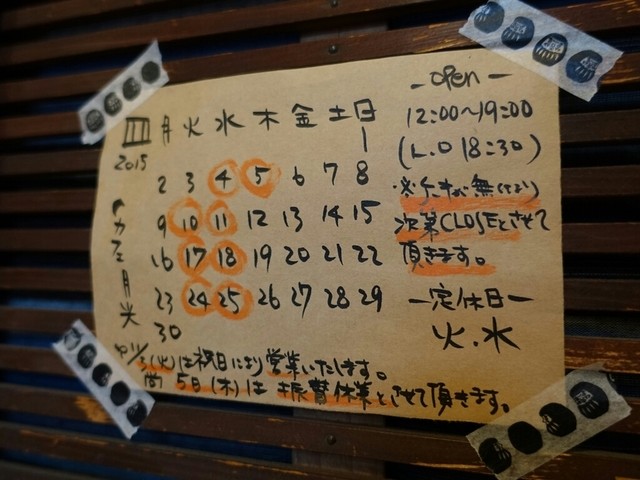 月 火 水 木 金 土 日
2015
1
2 3 4 5 6 7 8
9 10 11 12 13 14 15
16 17 18 19 20 21 22
23 24 25 26 27 28 29
30
カフェ月
-open-
12:00~19:00
(L.O 18:30)
※ケーキが無くなり
次第CLOSEとさせて
頂きます。
-定休日-
火.水
11/3(火)は祝日により営業いたします。
尚 5日(木)は 振替休業とさせて頂きます。